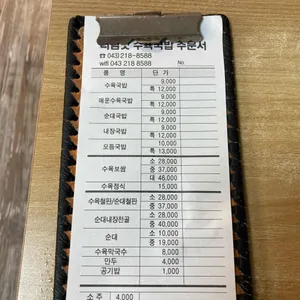 수육국밥 주문서
☎ 043) 218-8588
wifi 043 218 8588 No.
품 명 단 가
수육국밥 9,000
특 12,000
매운수육국밥 9,000
특 12,000
순대국밥 9,000
특 12,000
내장국밥 9,000
특 12,000
모듬국밥 10,000
특 13,000
수육보쌈 소 28,000
중 37,000
대 46,000
수육정식 15,000
수육철판/순대철판 소 28,000
중 37,000
순대내장전골 소 28,000
중 40,000
순대 소 10,000
중 19,000
수육막국수 8,000
만두 4,000
공기밥 1,000
소 주 4,000